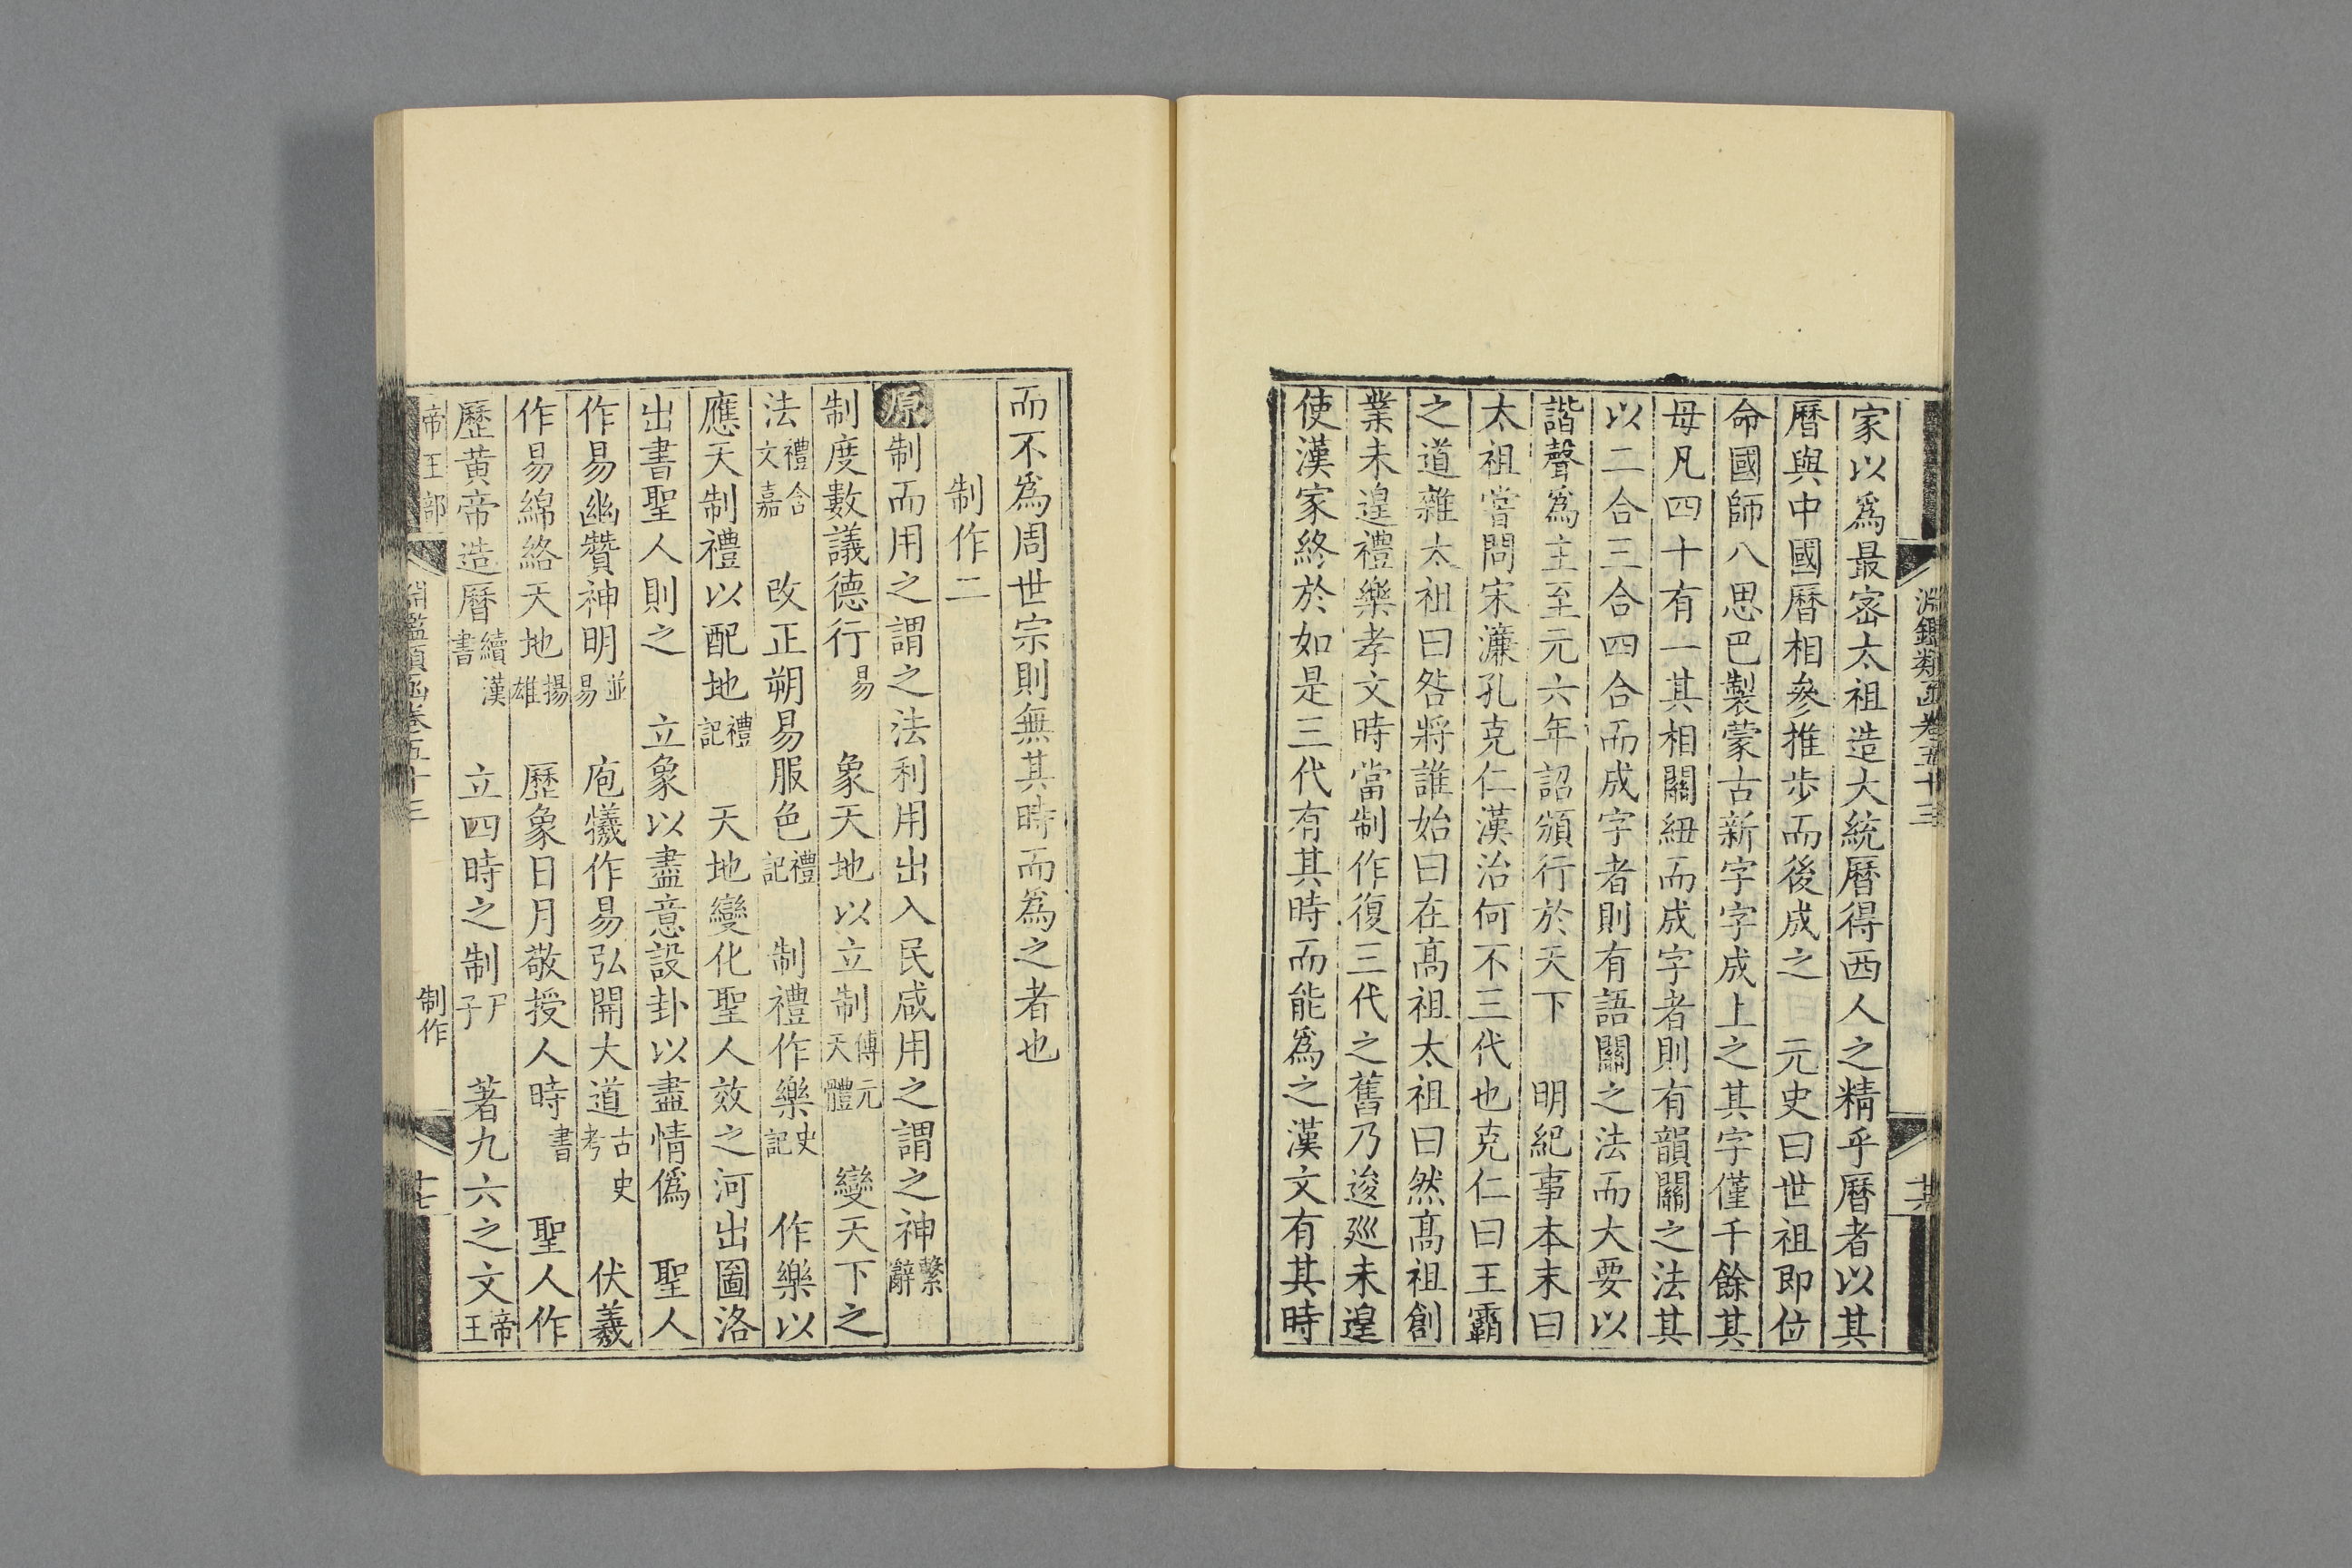 淵鑑類函卷五十三
家以爲最宻太祖造大統曆得西人之精乎曆者以其
曆與中國曆相參推歩而後成之 元史曰世祖即位
命國師八思巴製蒙古新字字成上之其字僅千餘其
母凡四十有一其相關紐而成字者則有韻關之法其
以二合三合四合而成字者則有語關之法而大要以
諧聲爲主至元六年詔頒行於天下 明紀事本末曰
太祖嘗問宋濂孔克仁漢治何不三代也克仁曰王霸
之道雜太祖曰咎將誰始曰在髙祖太祖曰然髙祖創
業未遑禮樂孝文時當制作復三代之舊乃逡廵未遑
使漢家終於如是三代有其時而能爲之漢文有其時
而不爲周世宗則無其時而爲之者也
制作二
原制而用之謂之法利用出入民咸用之謂之神繫辭
制度數議德行易 象天地以立制傅元天體 變天下之
法禮合文嘉 改正朔易服色禮記 制禮作樂史記 作樂以
應天制禮以配地禮記 天地變化聖人效之河出圖洛
出書聖人則之 立象以盡意設卦以盡情僞 聖人
作易幽贊神明並易 庖犧作易弘開大道古史考 伏羲
作易綿絡天地揚雄 歷象日月敬授人時書 聖人作
歷黄帝造曆續漢書 立四時之制尸子 著九六之文帝王
帝王部 淵鑑類函卷五十三 制作 十七